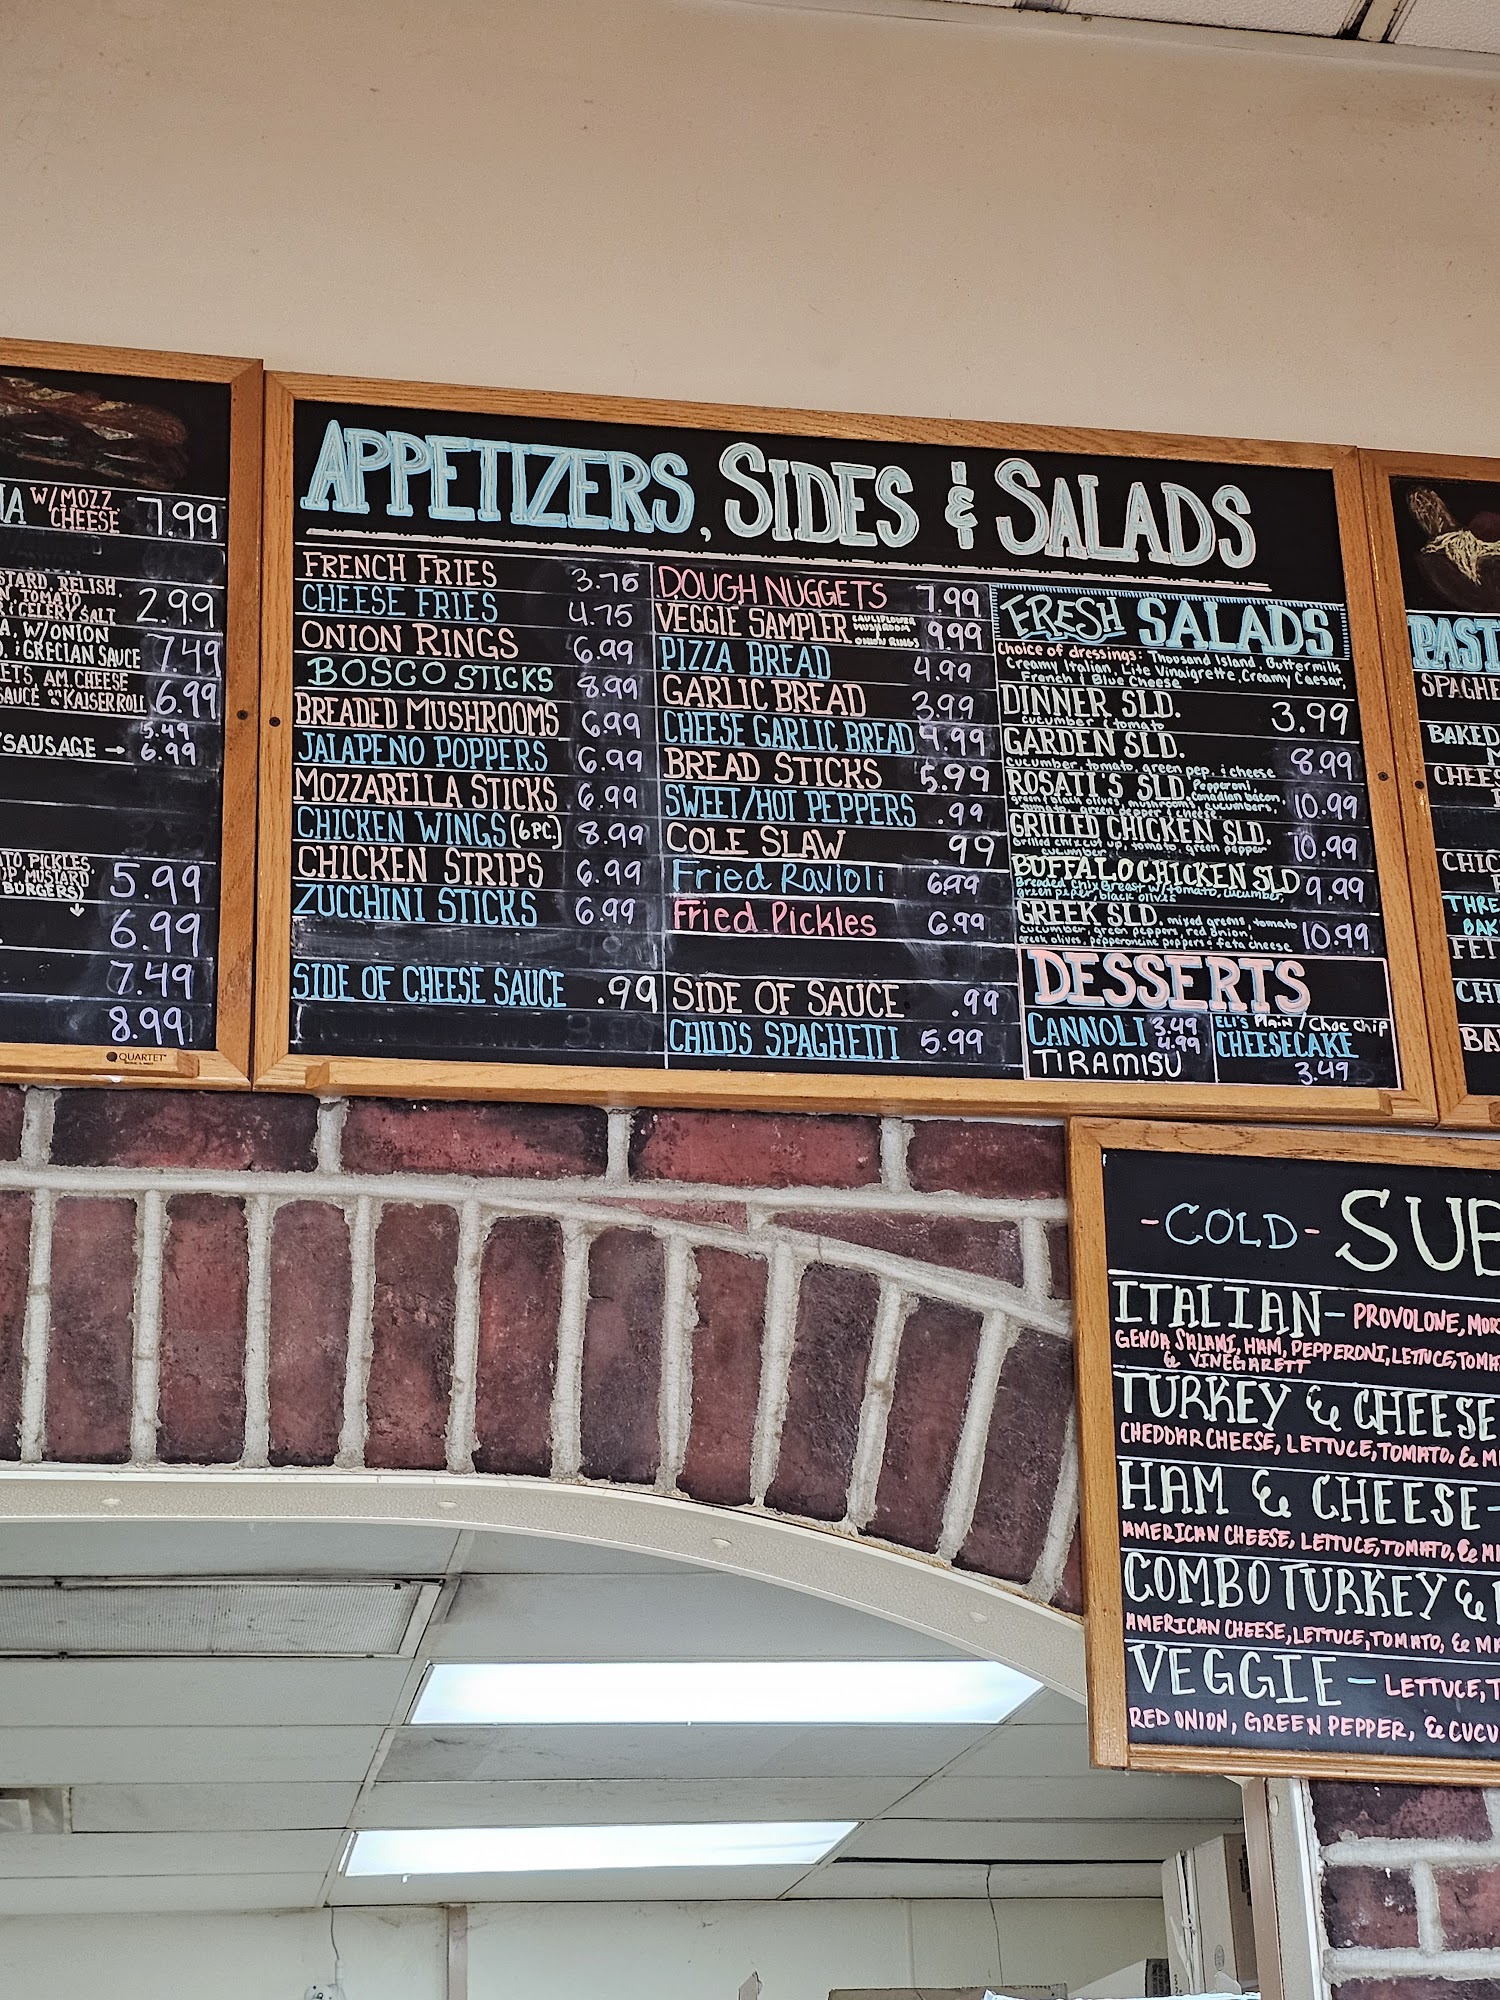 W/MOZZ
CHEESE 7.99
STARD, RELISH,
TOMATO,
& CELERY SALT 2.99
W/ONION
& GRECIAN SAUCE 7.49
AM. CHEESE
SAUCE on KAISER ROLL 6.99
5.49
SAUSAGE → 6.99
PICKLES,
MUSTARD
BURGERS) 5.99
6.99
7.49
8.99
QUARTET
APPETIZERS, SIDES & SALADS
FRENCH FRIES 3.75
CHEESE FRIES 4.75
ONION RINGS 6.99
BOSCO STICKS 8.99
BREADED MUSHROOMS 6.99
JALAPENO POPPERS 6.99
MOZZARELLA STICKS 6.99
CHICKEN WINGS (6PC.) 8.99
CHICKEN STRIPS 6.99
ZUCCHINI STICKS 6.99
SIDE OF CHEESE SAUCE .99
DOUGH NUGGETS 7.99
VEGGIE SAMPLER CAULIFLOWER MUSHROOM ONION RINGS 9.99
PIZZA BREAD 4.99
GARLIC BREAD 3.99
CHEESE GARLIC BREAD 4.99
BREAD STICKS 5.99
SWEET/HOT PEPPERS .99
COLE SLAW .99
Fried Ravioli 6.99
Fried Pickles 6.99
SIDE OF SAUCE .99
CHILD'S SPAGHETTI 5.99
FRESH SALADS
Choice of dressings: Thousand Island, Buttermilk
Creamy Italian, Lite Vinaigrette, Creamy Caesar,
French & Blue Cheese
DINNER SLD. 3.99
cucumber & tomato
GARDEN SLD. 8.99
cucumber, tomato, green pep. & cheese
ROSATI'S SLD. Pepperoni, 10.99
green & black olives, mushrooms, Canadian bacon, cucumbers,
tomato, green pepper & cheese
GRILLED CHICKEN SLD. 10.99
Grilled chix cut up, tomato, green pepper
cucumber
BUFFALO CHICKEN SLD 9.99
Breaded Chix Breast w/tomato, cucumber,
green pepper, black olives
GREEK SLD. mixed greens, tomato 10.99
cucumber, green peppers, red onion,
greek olives, pepperoncine peppers & feta cheese
DESSERTS
CANNOLI 3.49
TIRAMISU 4.99
ELI'S Plain / Choc chip
CHEESECAKE
3.49
PAST
SPAGHE
BAKED
CHEES
CHIC
THRE
BAK
FET
CHI
BA
-COLD- SUB
ITALIAN- PROVOLONE, MOR
GENOA SALAMI, HAM, PEPPERONI, LETTUCE, TOMA
& VINEGARETT
TURKEY & CHEESE
CHEDDAR CHEESE, LETTUCE, TOMATO, & M
HAM & CHEESE-
AMERICAN CHEESE, LETTUCE, TOMATO, & M
COMBO TURKEY &
AMERICAN CHEESE, LETTUCE, TOMATO, & MA
VEGGIE- LETTUCE, T
RED ONION, GREEN PEPPER, & CUCU